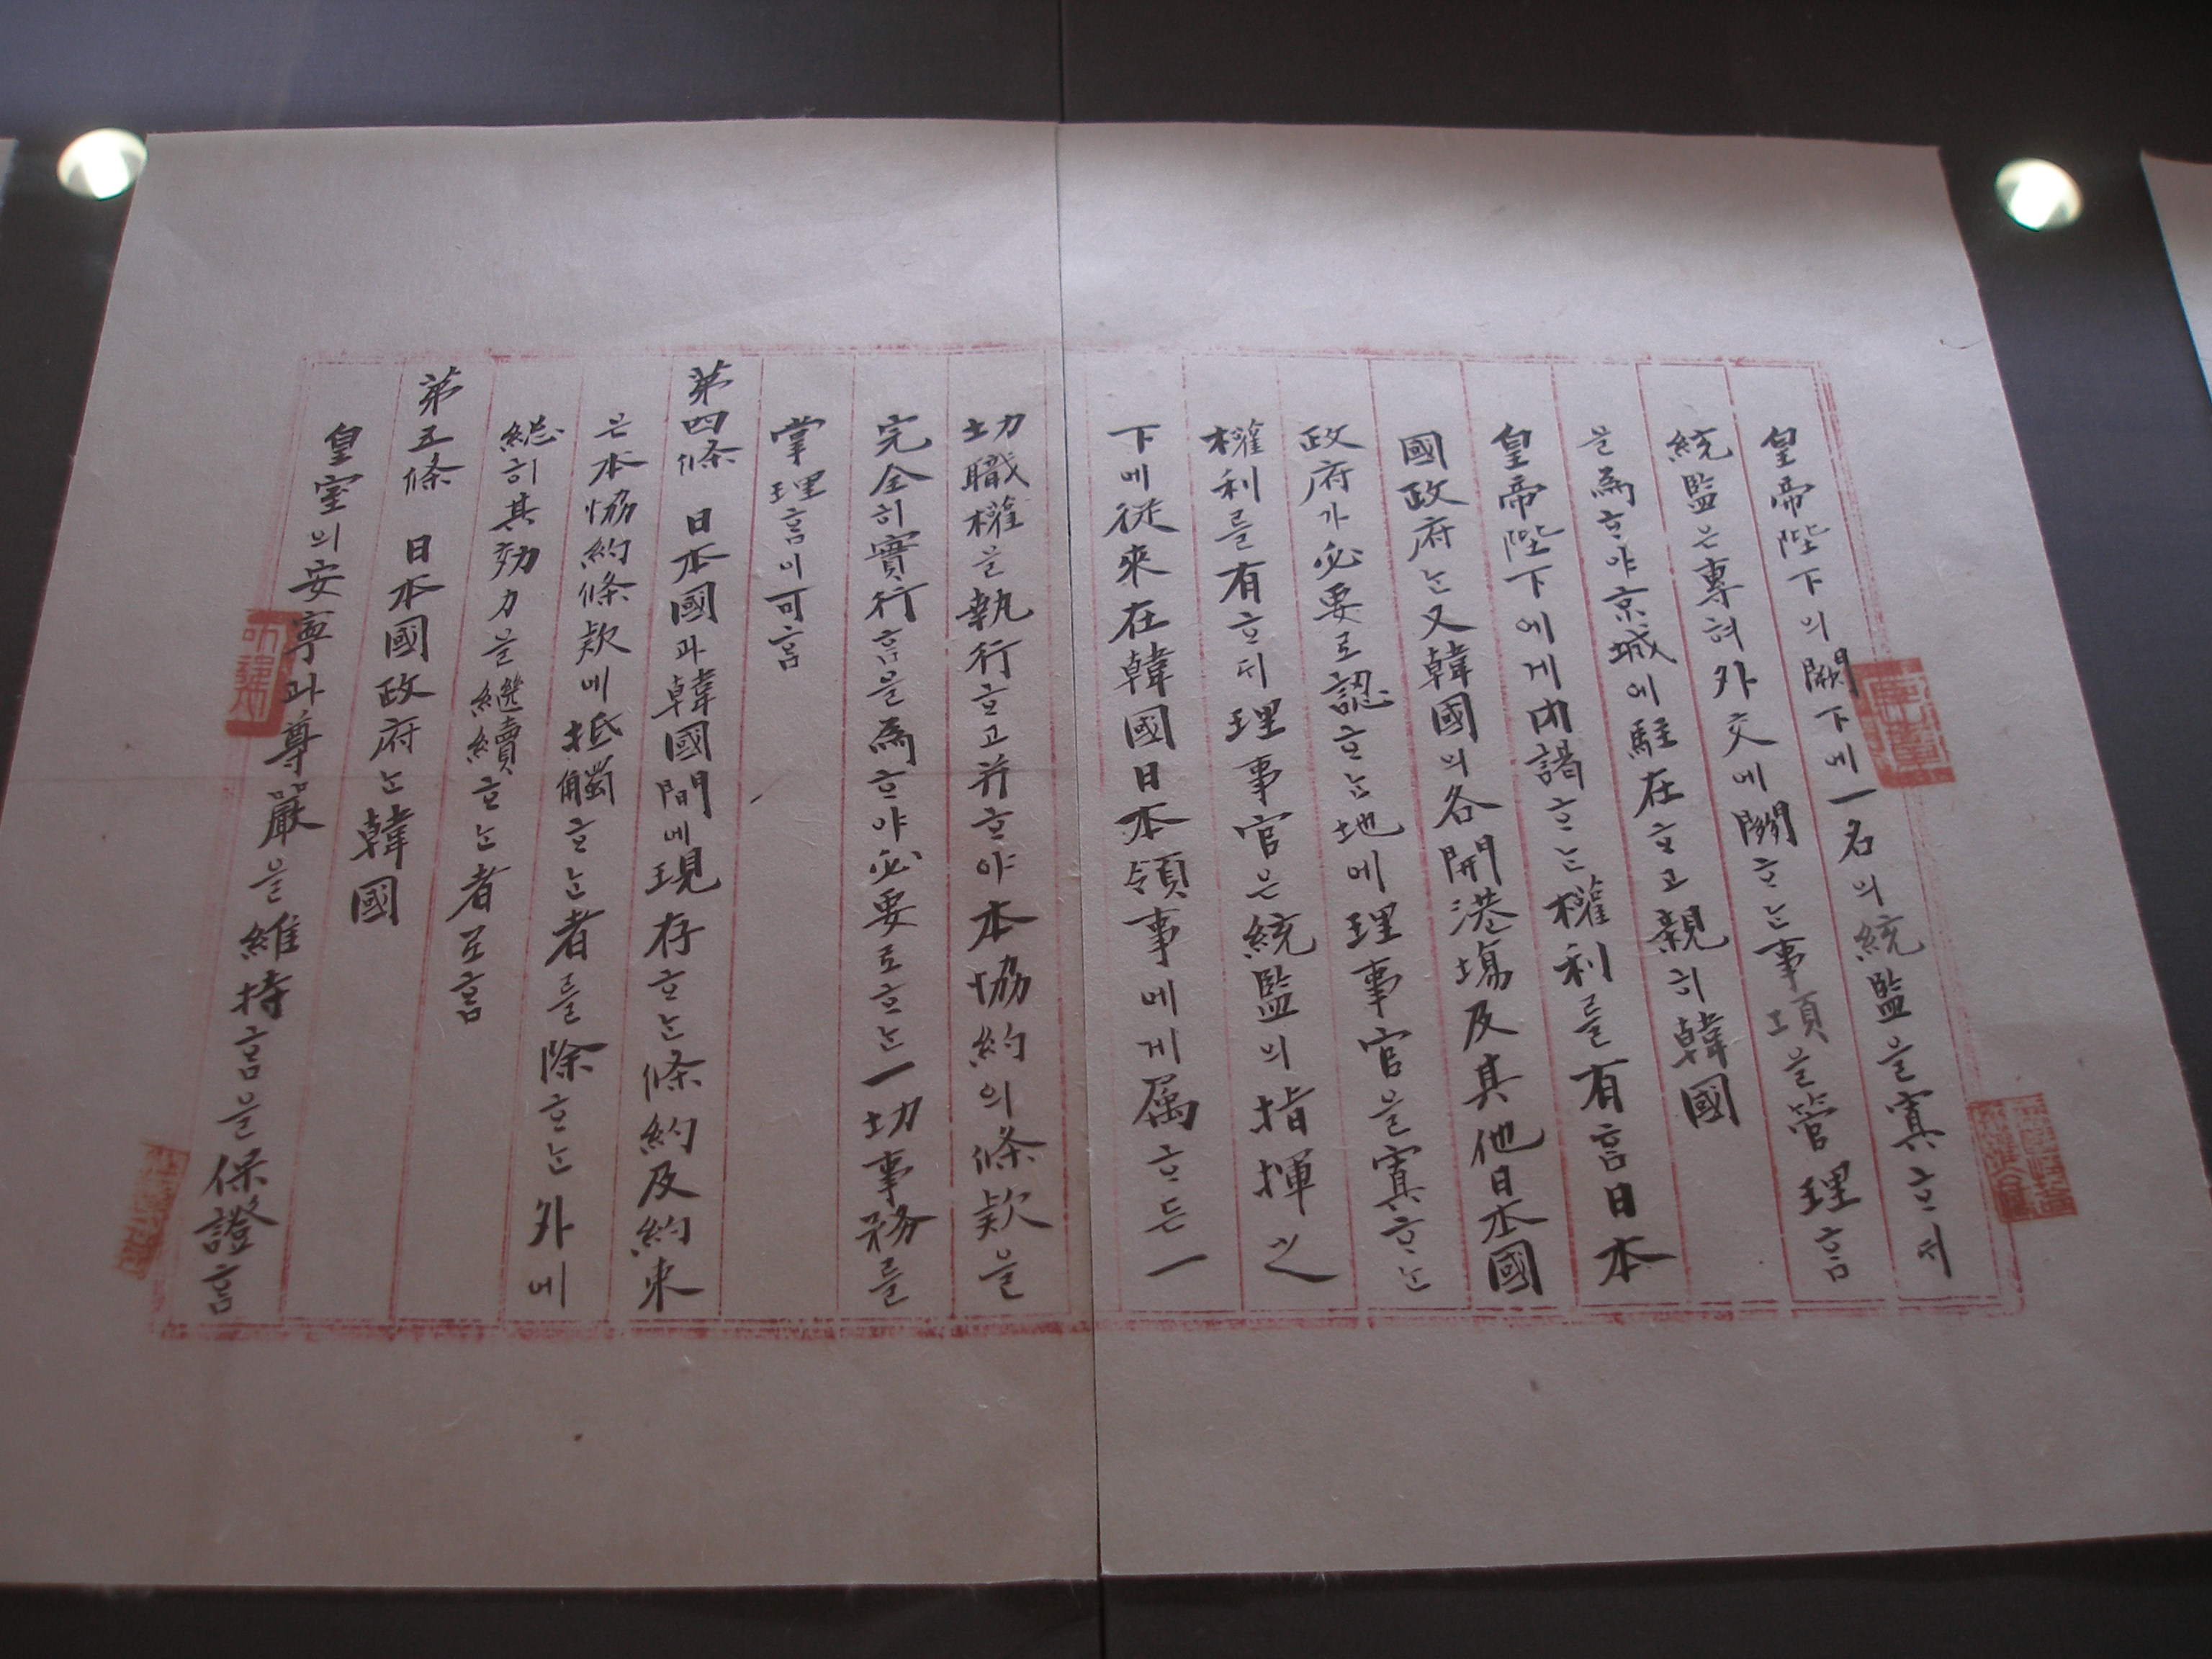 皇帝陛下의闕下에一名의統監을寘호ᄃᆡ
統監은專혀外交에關ᄒᆞᄂᆞᆫ事項을管理ᄒᆞᆷ
을爲ᄒᆞ야京城에駐在ᄒᆞ고親히韓國
皇帝陛下에게內謁ᄒᆞᄂᆞᆫ權利를有ᄒᆞᆷ日本
國政府ᄂᆞᆫ又韓國의各開港場及其他日本國
政府가必要로認ᄒᆞᄂᆞᆫ地에理事官을寘ᄒᆞᄂᆞᆫ
權利를有호ᄃᆡ理事官은統監의指揮之
下에從來在韓國日本領事에게属ᄒᆞ든一
切職權을執行ᄒᆞ고并ᄒᆞ야本協約의條款을
完全히實行ᄒᆞᆷ을爲ᄒᆞ야必要로ᄒᆞᄂᆞᆫ一切事務를
掌理ᄒᆞᆷ이可ᄒᆞᆷ
第四條 日本國과韓國間에現存ᄒᆞᄂᆞᆫ條約及約束
은本協約條款에抵觸ᄒᆞᄂᆞᆫ者를除ᄒᆞᄂᆞᆫ外에
總히其効力을繼續ᄒᆞᄂᆞᆫ者로ᄒᆞᆷ
第五條 日本國政府ᄂᆞᆫ韓國
皇室의安寧과尊嚴을維持ᄒᆞᆷ을保證ᄒᆞᆷ